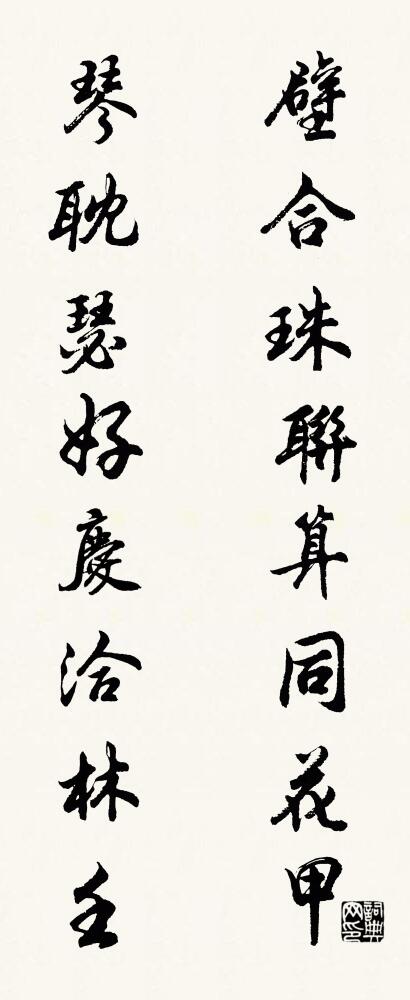 璧合珠聯算同花甲
琴耽瑟好慶洽林壬
詞典網印